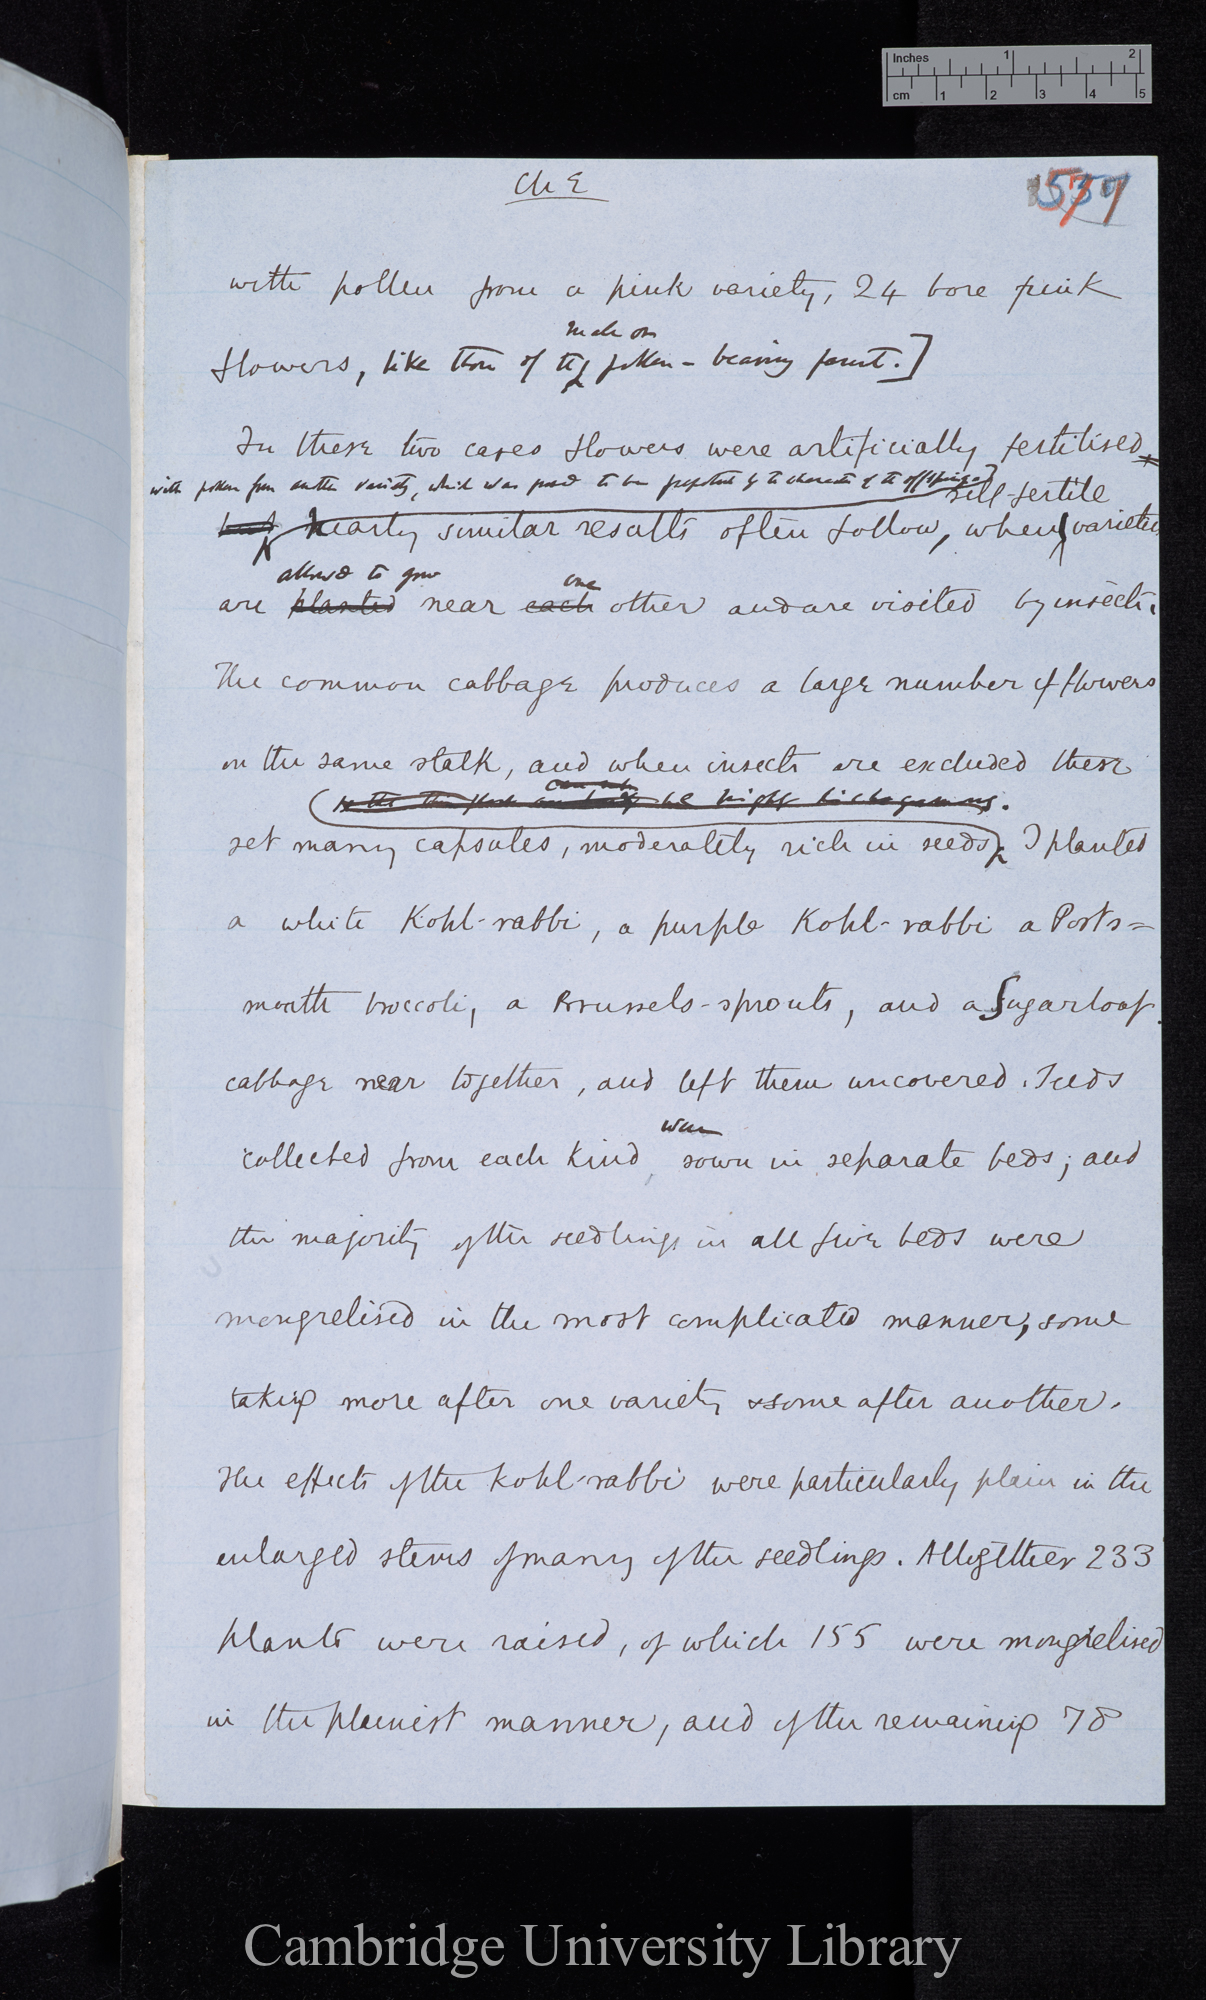 Inches 1 2
cm 1 2 3 4 5
Ch E
537
with pollen from a pink variety, 24 bore pink
male or
flowers, like those of the pollen-bearing parent.]
In these two cases flowers were artificially fertilised
with pollen from another variety, which was proved to be prepotent by the character of the offspring
self-fertile
but nearly similar results often follow, when varieties
allowed to grow one
are planted near each other and are visited by insects.
The common cabbage produces a large number of flowers
on the same stalk, and when insects are excluded these
set many capsules, moderately rich in seeds. I planted
a white Kohl-rabbi, a purple Kohl-rabbi a Ports=
mouth broccoli, a Brussels-sprouts, and a Sugarloaf
cabbage near together, and left them uncovered. Seeds
were
collected from each kind sown in separate beds; and
the majority of the seedlings in all five beds were
mongrelised in the most complicated manner, some
taking more after one variety & some after another.
The effects of the Kohl-rabbi were particularly plain in the
enlarged stems of many of the seedlings. Altogether 233
plants were raised, of which 155 were mongrelised
in the plainest manner, and of the remaining 78
Cambridge University Library